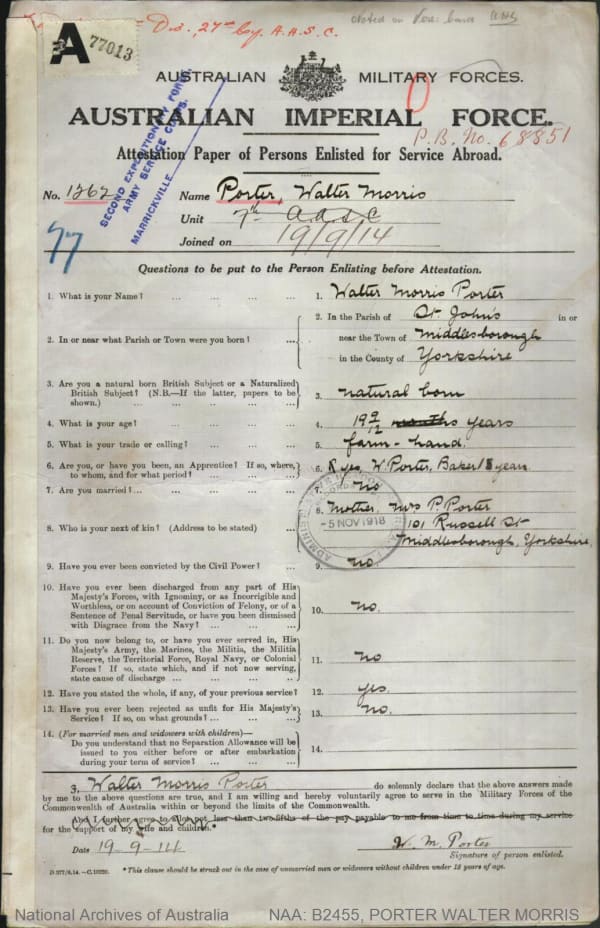 A 77013
27th Coy. A.A.S.C.
noted on
AUSTRALIAN MILITARY FORCES.
AUSTRALIAN IMPERIAL FORCE.
P.B. No. 68851
Attestation Paper of Persons Enlisted for Service Abroad.
SECOND EXPEDITIONARY FORCE,
ARMY SERVICE CORPS.
MARRICKVILLE
No. 1262 Name Porter, Walter Morris
Unit 7th A.A.S.C
77
Joined on 19/9/14
Questions to be put to the Person Enlisting before Attestation.
1. What is your Name? ... ... ... ... 1. Walter Morris Porter
2. In or near what Parish or Town were you born? ... 2. In the Parish of St. John's in or
near the Town of Middlesborough
in the County of Yorkshire
3. Are you a natural born British Subject or a Naturalized
British Subject? (N.B.—If the latter, papers to be
shown.) ... ... ... ... ... 3. natural born
4. What is your age? ... ... ... ... 4. 19 9/12 months years
5. What is your trade or calling? ... ... ... 5. farm-hand.
6. Are you, or have you been, an Apprentice? If so, where,
to whom, and for what period? ... ... ... 6. yes, W. Porter, Baker 1 year
7. Are you married? ... ... ... ... 7. No
8. Who is your next of kin? (Address to be stated) ... 8. Mother, Mrs P. Porter
101 Russell St
Middlesborough, Yorkshire
-5 NOV 1918
9. Have you ever been convicted by the Civil Power? ... 9. no
10. Have you ever been discharged from any part of His
Majesty's Forces, with Ignominy, or as Incorrigible and
Worthless, or on account of Conviction of Felony, or of a
Sentence of Penal Servitude, or have you been dismissed
with Disgrace from the Navy? ... ... ... 10. no.
11. Do you now belong to, or have you ever served in, His
Majesty's Army, the Marines, the Militia, the Militia
Reserve, the Territorial Force, Royal Navy, or Colonial
Forces? If so, state which, and if not now serving,
state cause of discharge ... ... ... ... 11. no
12. Have you stated the whole, if any, of your previous service? 12. yes.
13. Have you ever been rejected as unfit for His Majesty's
Service? If so, on what grounds? ... ... ... 13. no.
14. (For married men and widowers with children)—
Do you understand that no Separation Allowance will be
issued to you either before or after embarkation
during your term of service? ... ... ... 14.
I, Walter Morris Porter do solemnly declare that the above answers made
by me to the above questions are true, and I am willing and hereby voluntarily agree to serve in the Military Forces of the
Commonwealth of Australia within or beyond the limits of the Commonwealth.
And I further agree to allot not less than two-fifths of the pay payable to me from time to time during my service
for the support of my wife and children.*
Date 19-9-14 W. M. Porter
Signature of person enlisted.
D.277/6.14.—C.10220. * This clause should be struck out in the case of unmarried men or widowers without children under 18 years of age.
National Archives of Australia NAA: B2455, PORTER WALTER MORRIS